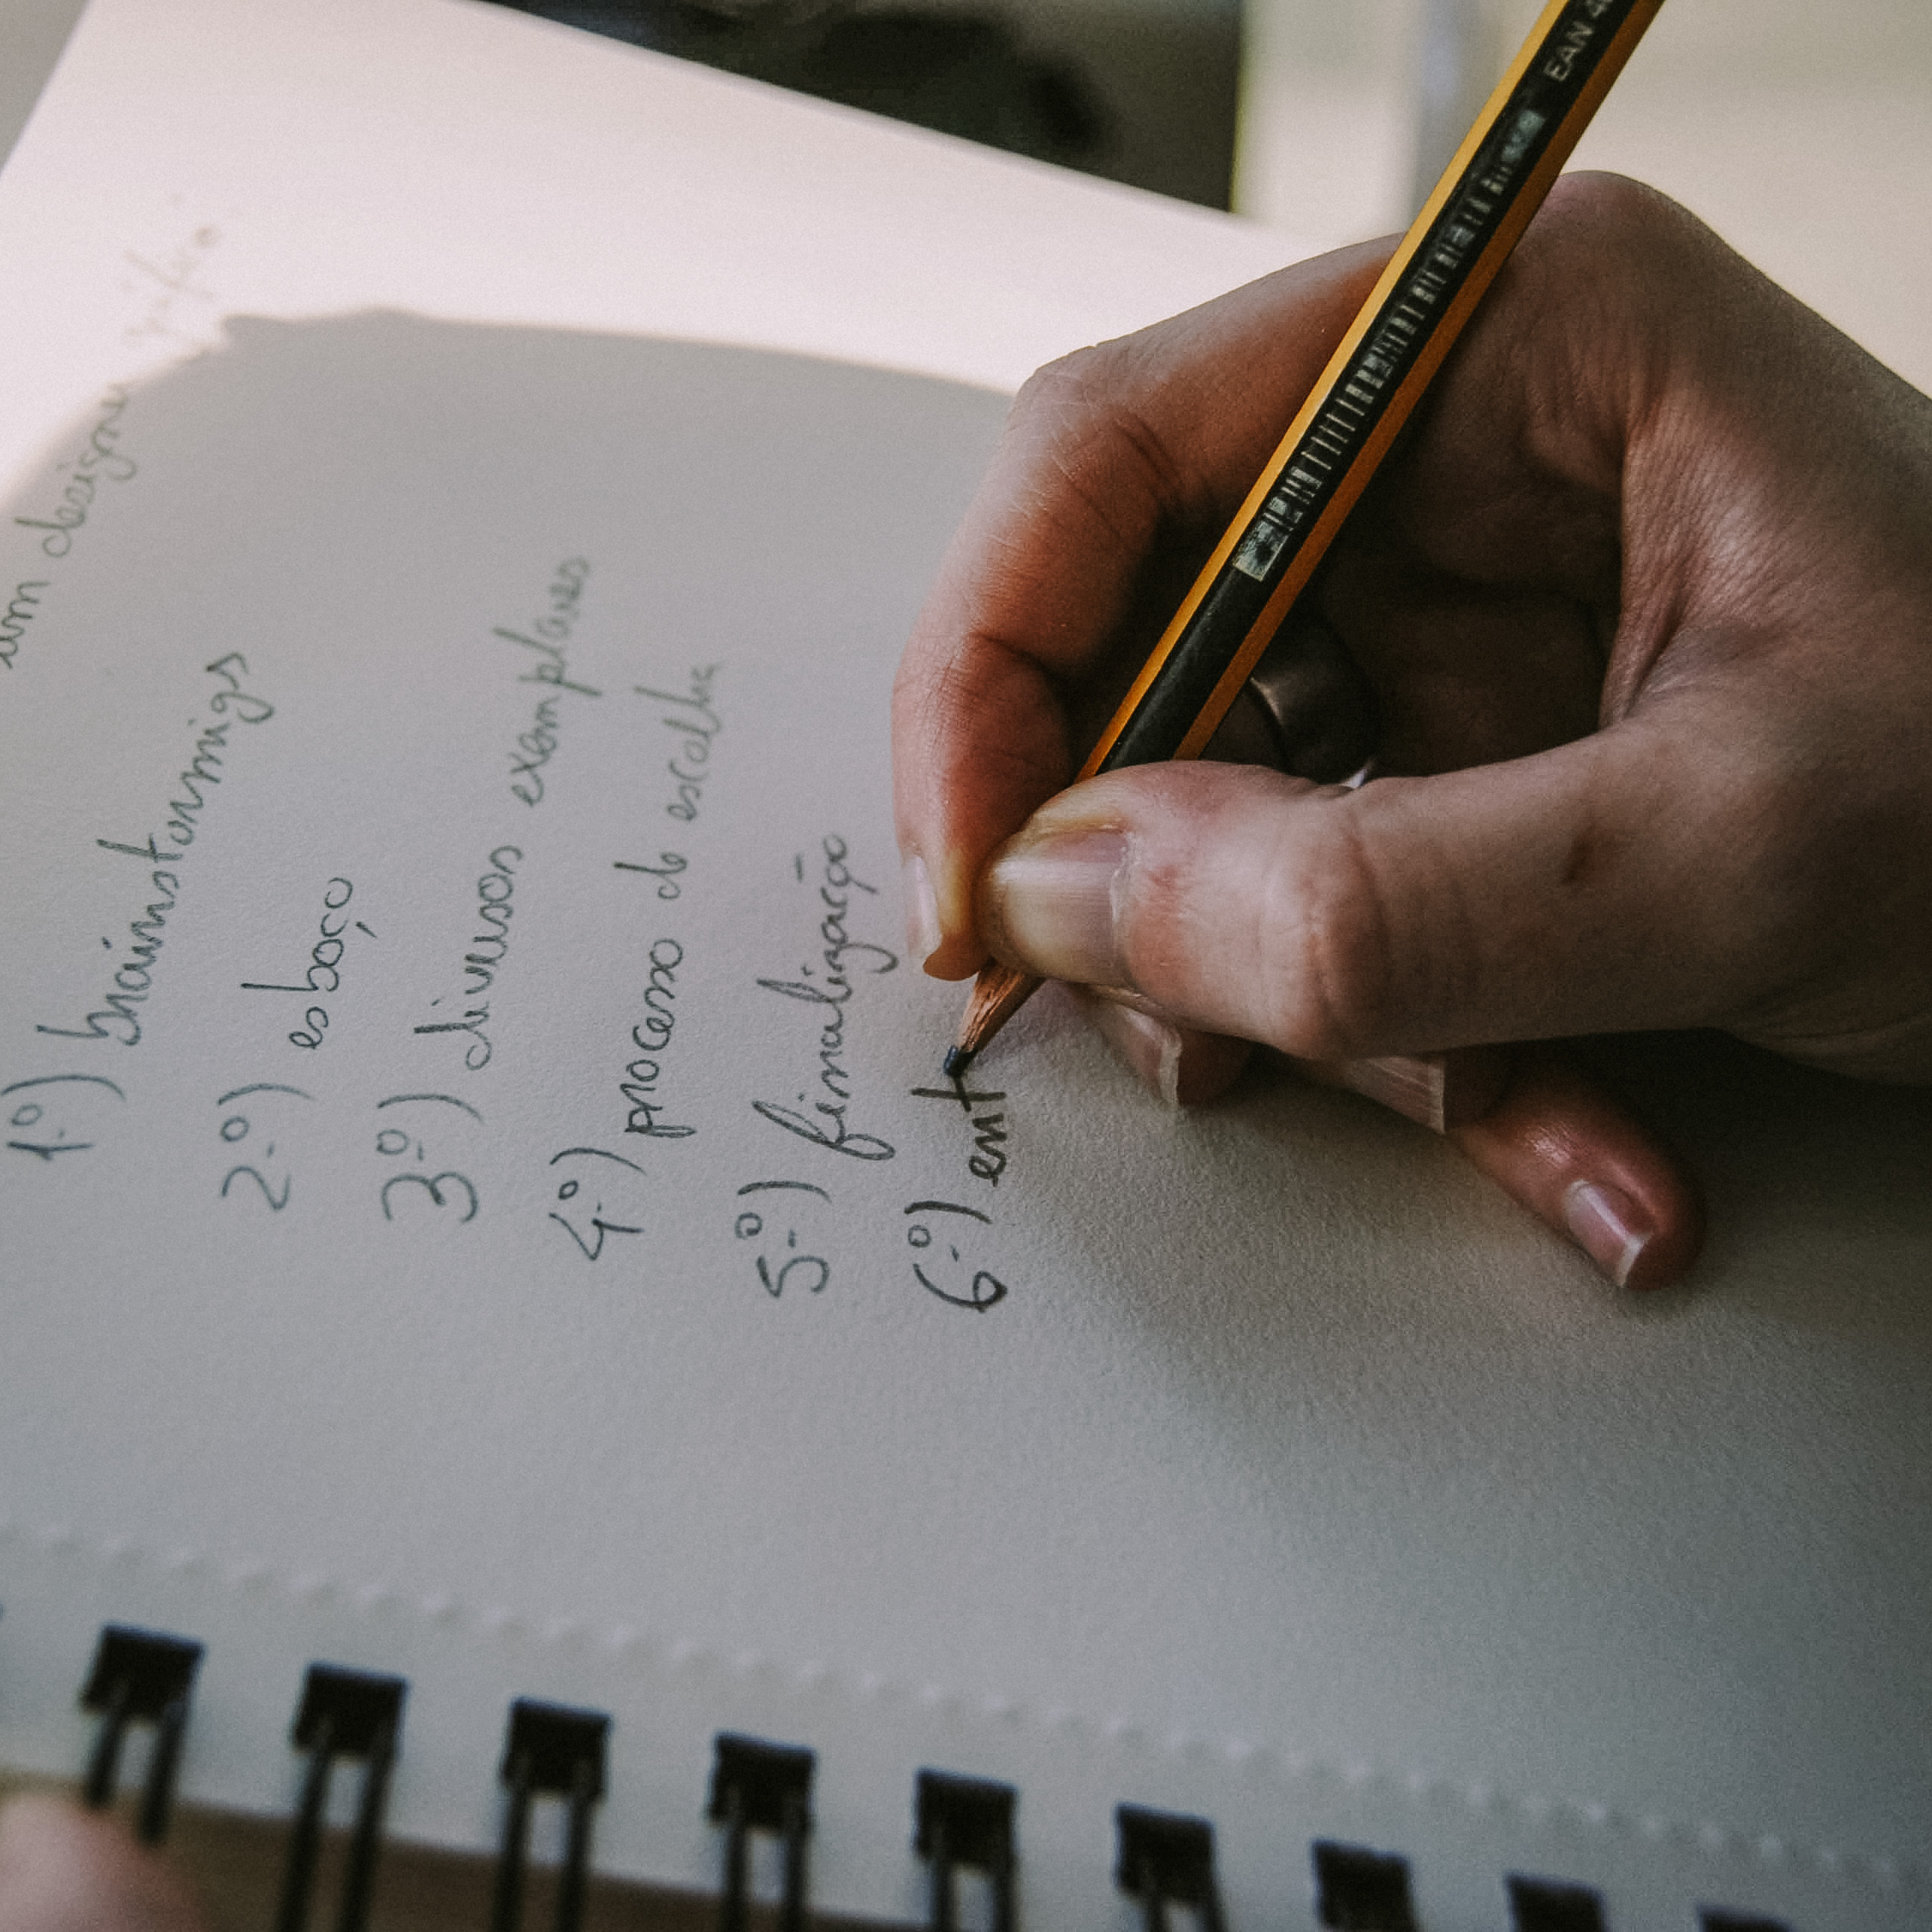 um designer gráfico
1º) brainstormigs
2º) esboço
3º) diversos exemplares
4º) processo de escolha
5º) finalização
6º) ent
EAN 40